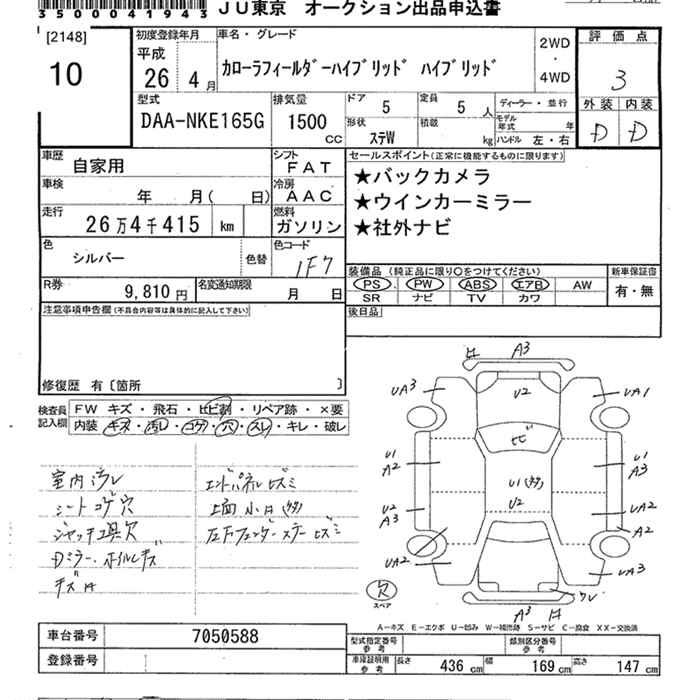 3500041943 JU東京 オークション出品申込書
[2148]
10
初度登録年月
平成
26年 4月
車名・グレード
カローラフィールダーハイブリッド ハイブリッド
2WD
・
4WD
評価点
3
外装 内装
D D
型式
DAA-NKE165G
排気量
1500
CC
ドア 5
定員 5 人
ディーラー・並行
形状 ステW
積載 kg
モデル年式 年
ハンドル 左・右
車歴
自家用
シフト
FAT
車検
年 月( 日)
冷房
AAC
走行
26万4千415 km
燃料
ガソリン
色
シルバー
色替
色コード
1F7
R券
9,810 円
名変通知期限
月 日
セールスポイント(正常に機能するものに限ります)
★バックカメラ
★ウインカーミラー
★社外ナビ
装備品 (純正品に限り○をつけてください)
PS PW ABS エアB AW
SR ナビ TV カワ
新車保証書
有・無
後日品
注意事項申告欄(不具合内容等は具体的に記入して下さい)
修復歴 有〔箇所 〕
検査員記入欄
FW キズ・飛石・ヒビ割・リペア跡・×要
内装 キズ・汚レ・コゲ・穴・スレ・キレ・破レ
室内汚レ
シートコゲ穴
ジャッキ工具欠
Dミラー・ホイルキズ
エンドパネルヒズミ
左Fフェンダーステーヒズミ
A3
U2
UA3
UA1
ヒビ
U1
A2
U1
A3
U2
A3
U2
UA2
A2
UA2
UA3
A3
欠
スペア
A－キズ E－エクボ U－凹み W－補修跡 S－サビ C－腐食 XX－交換済
車台番号
7050588
登録番号
型式指定番号
参考
類別区分番号
参考
車庫証明用
参考
長さ 436 cm
幅 169 cm
高さ 147 cm